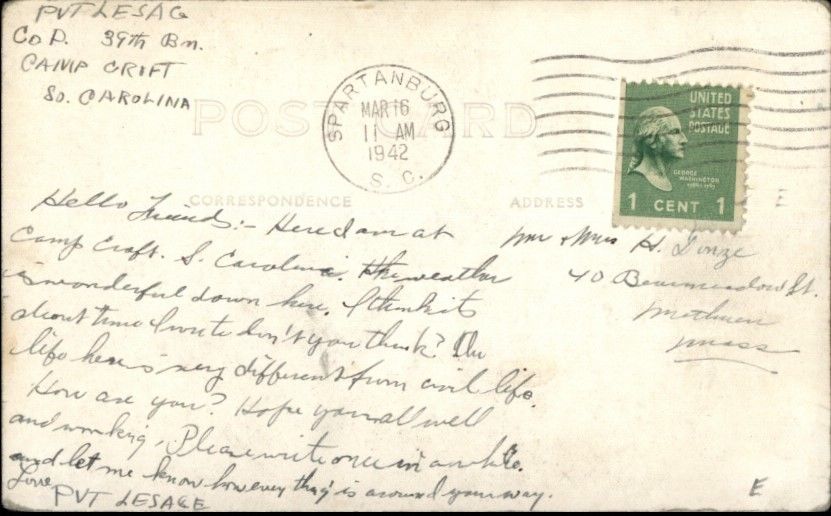 PVT LESAG
Co D. 39th Bn.
CAMP CROFT
SO. CAROLINA
POST CARD
SPARTANBURG
MAR 16
11 AM
1942
S. C.
UNITED
STATES
POSTAGE
GEORGE
WASHINGTON
1 CENT 1
CORRESPONDENCE
ADDRESS
Hello Friends:- Here I am at
Camp Croft. S. Carolina. The weather
is wonderful down here. I think its
about time I wrote don't you think? The
life here is very different from civil life.
How are you? Hope you all well
and working, Please write once in a while.
and let me know how every thing is around your way.
Love
PVT LESAGE
Mr & Mrs H.
40 St.
Methuen
Mass
E
E